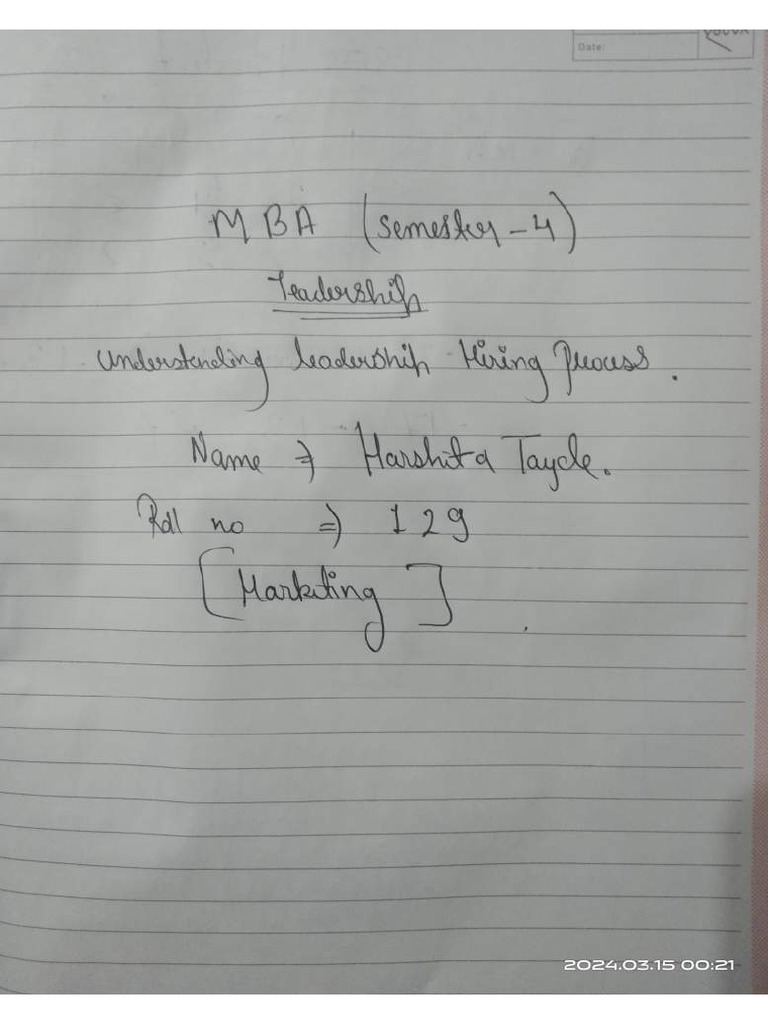 Date:
MBA (Semester - 4)
Leadership
Understanding leadership Hiring Process.
Name ⇒ Harshita Tayde.
Roll no ⇒ 129
[Marketing]
2024.03.15 00:21